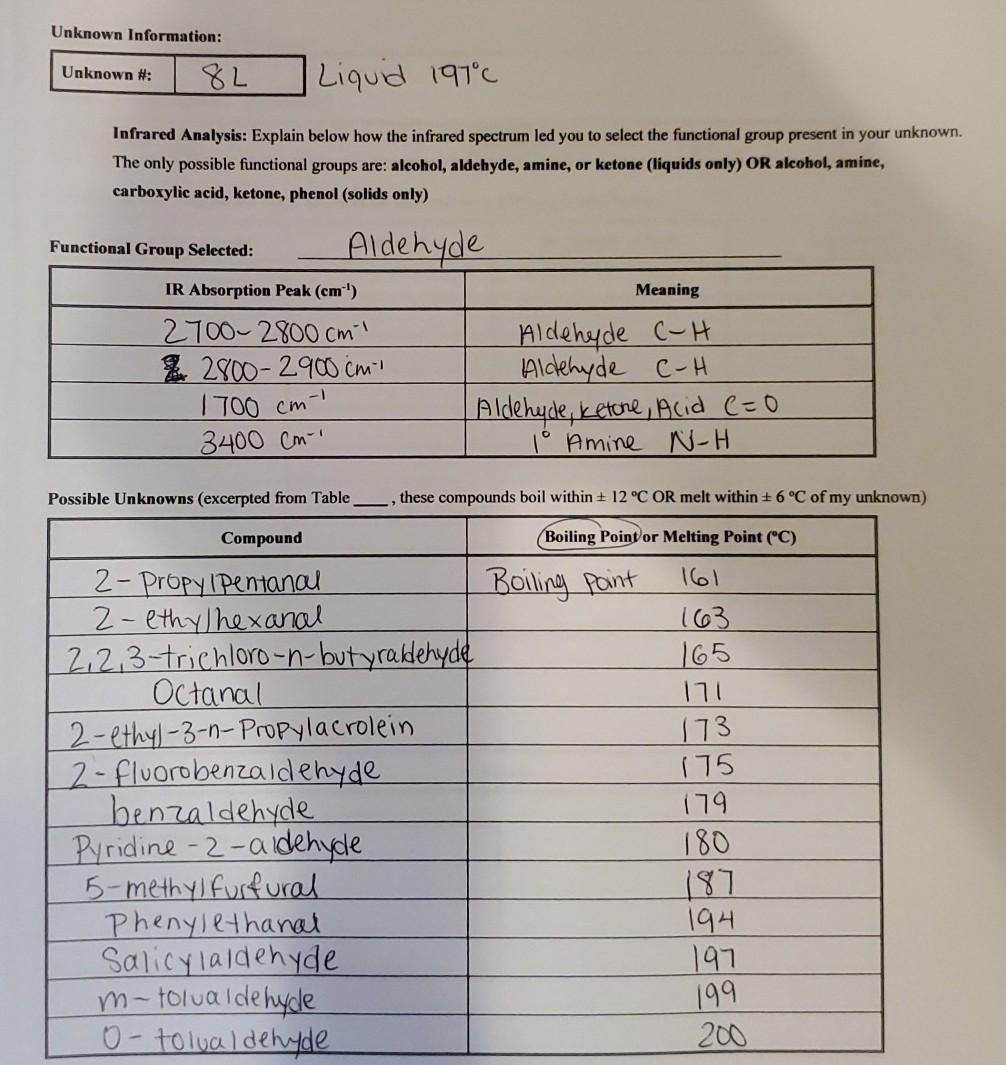 Unknown Information:
Unknown #: 8L Liquid 197°C
Infrared Analysis: Explain below how the infrared spectrum led you to select the functional group present in your unknown.
The only possible functional groups are: alcohol, aldehyde, amine, or ketone (liquids only) OR alcohol, amine,
carboxylic acid, ketone, phenol (solids only)
Functional Group Selected: Aldehyde
IR Absorption Peak (cm⁻¹) Meaning
2700-2800 cm⁻¹ Aldehyde C-H
2800-2900 cm⁻¹ Aldehyde C-H
1700 cm⁻¹ Aldehyde, ketone, Acid C=O
3400 cm⁻¹ 1° Amine N-H
Possible Unknowns (excerpted from Table ____, these compounds boil within ± 12 °C OR melt within ± 6 °C of my unknown)
Compound Boiling Point or Melting Point (°C)
2-Propylpentanal Boiling point 161
2-ethylhexanal 163
2,2,3-trichloro-n-butyraldehyde 165
Octanal 171
2-ethyl-3-n-Propylacrolein 173
2-fluorobenzaldehyde 175
benzaldehyde 179
Pyridine-2-aldehyde 180
5-methylfurfural 187
Phenylethanal 194
Salicylaldehyde 197
m-tolualdehyde 199
O-tolualdehyde 200